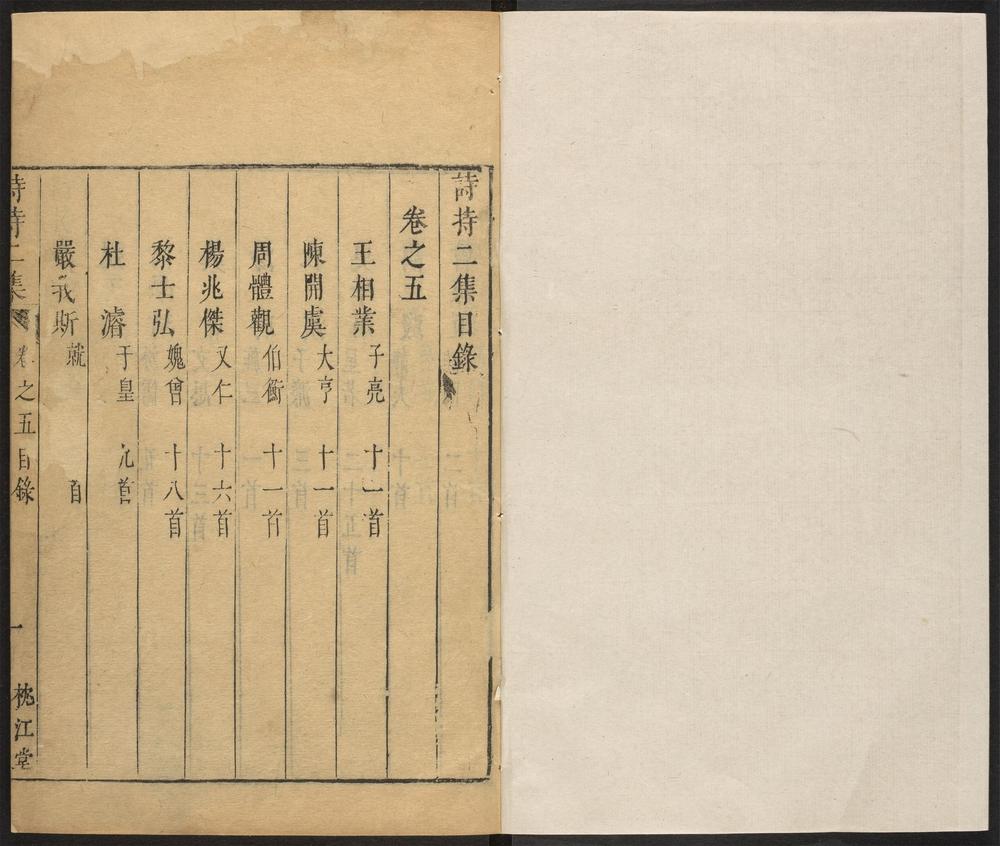 詩持二集目錄
卷之五
王相業 子亮 十一首
陳開虞 大亨 十一首
周體觀 伯衡 十一首
楊兆傑 又仁 十六首
黎士弘 媿曾 十八首
杜濬 于皇 九首
嚴我斯 就 首
詩持二集 卷之五目錄 一 枕江堂